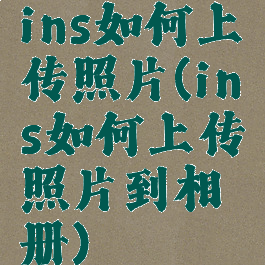 ins如何上
传照片(in
s如何上传
照片到相
册)